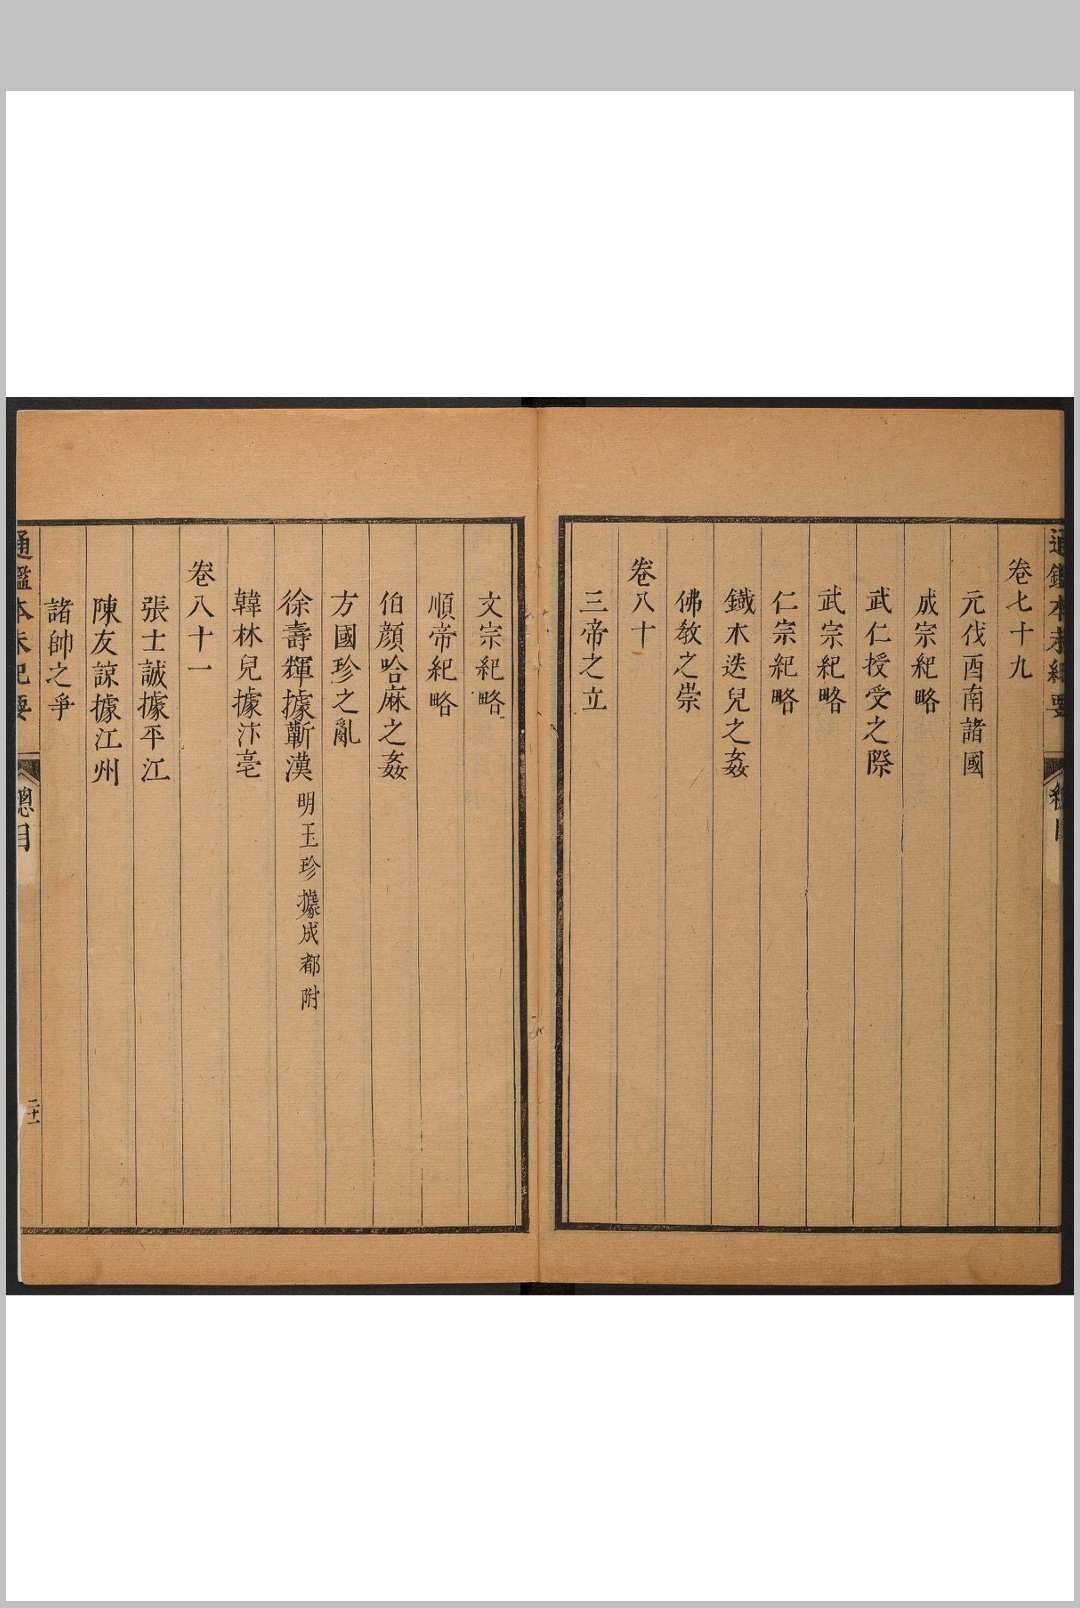 通鑑本末紀要
總目
卷七十九
元伐酉南諸國
成宗紀略
武仁授受之際
武宗紀略
仁宗紀略
鐵木迭兒之姦
佛教之崇
卷八十
三帝之立
文宗紀略
順帝紀略
伯顏哈麻之姦
方國珍之亂
徐壽輝據蘄漢 明玉珍據成都附
韓林兒據汴亳
卷八十一
張士誠據平江
陳友諒據江州
諸帥之爭
通鑑本末紀要
總目
二十一